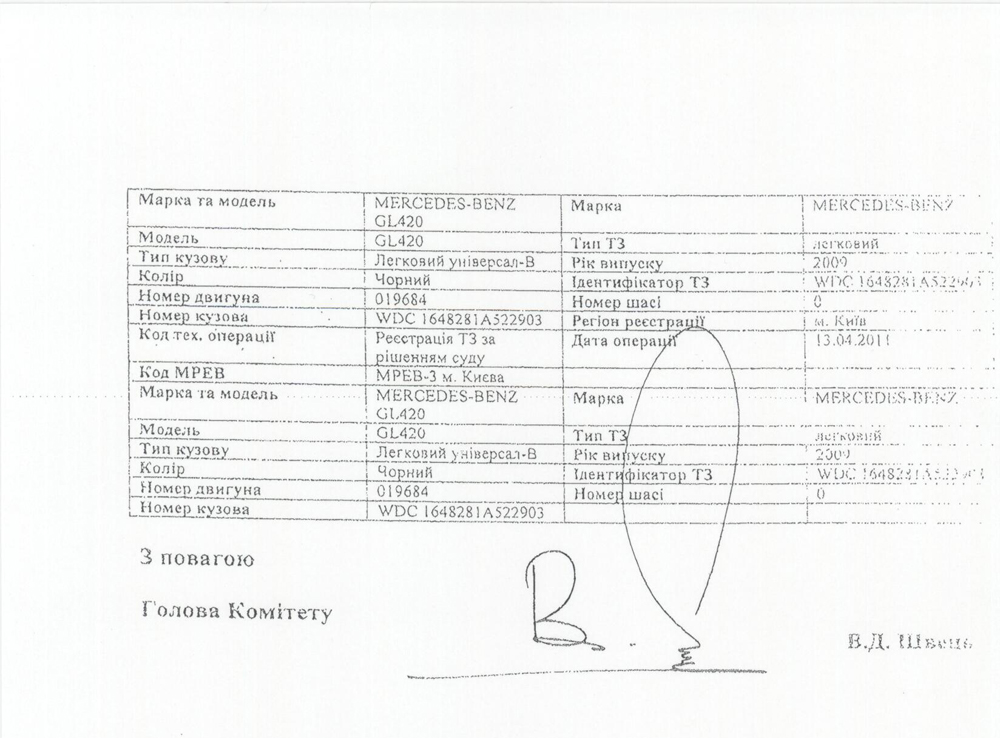 Марка та модель MERCEDES-BENZ Марка MERCEDES-BENZ
GL420
Модель GL420 Тип ТЗ легковий
Тип кузову Легковий універсал-В Рік випуску 2009
Колір Чорний Ідентифікатор ТЗ WDC 1648281A522903
Номер двигуна 019684 Номер шасі 0
Номер кузова WDC 1648281A522903 Регіон реєстрації м. Київ
Код тех. операції Реєстрація ТЗ за Дата операції 13.04.2011
рішенням суду
Код МРЕВ МРЕВ-3 м. Києва
Марка та модель MERCEDES-BENZ Марка MERCEDES-BENZ
GL420
Модель GL420 Тип ТЗ легковий
Тип кузову Легковий універсал-В Рік випуску 2009
Колір Чорний Ідентифікатор ТЗ WDC 1648281A522903
Номер двигуна 019684 Номер шасі 0
Номер кузова WDC 1648281A522903
З повагою
Голова Комітету
В.Д. Швець